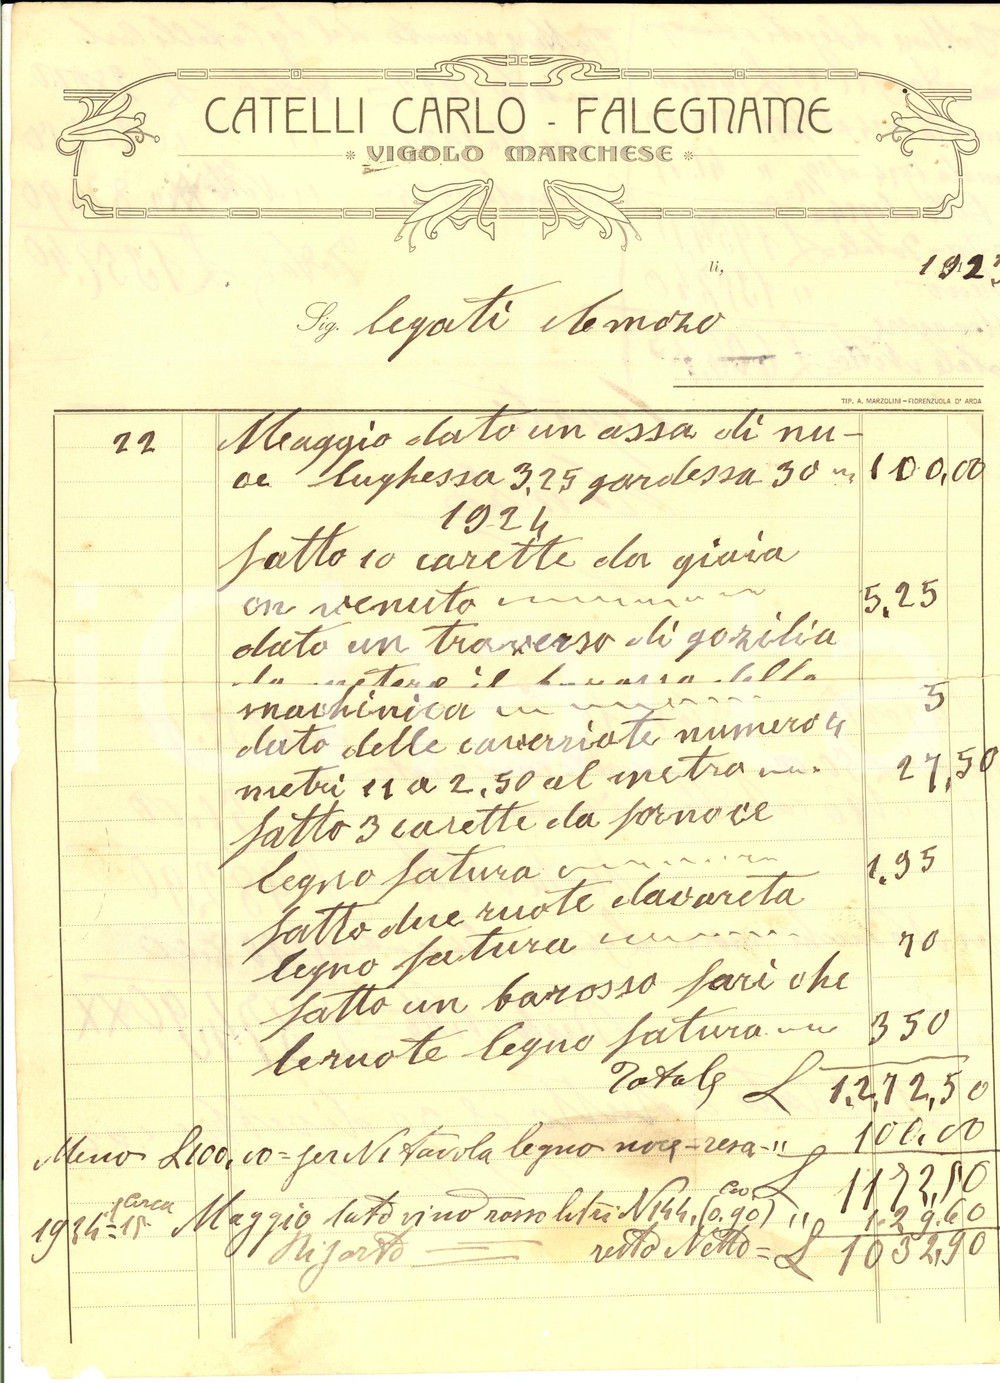 CATELLI CARLO - FALEGNAME
* VIGOLO MARCHESE *
li, 1923
Sig. legati
TIP. A. MARZOLINI - FIORENZUOLA D'ARDA
22 Maaggio dato un assa di nu-
ce lughessa 3,25 gardessa 30 100,00
1924
fatto 10 carette da giaia
on venuto 5,25
dato un traverso di gazilia
da metere il barosso della
machinica 5
dato delle caverriate numero 4
metri 11 a 2,50 al metro 27,50
fatto 3 carette da fornace
legno fatura 1,95
fatto due ruote davareta
legno fatura 70
fatto un barosso fari che
leruote legno fatura 350
Totale L 1.272,50
Meno £100,00 = per N1 tavola legno noce resa " 100,00
L 1172,50
1924 = 15 circa Maggio dato vino rosso litri N144, (0.90) " 129.60
Riporto resto Netto = L 1032,90